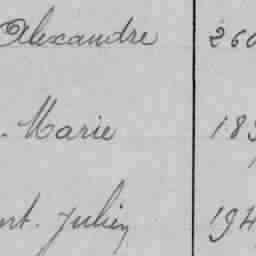 Alexandre 260
. Marie 183
nt. Julien 194